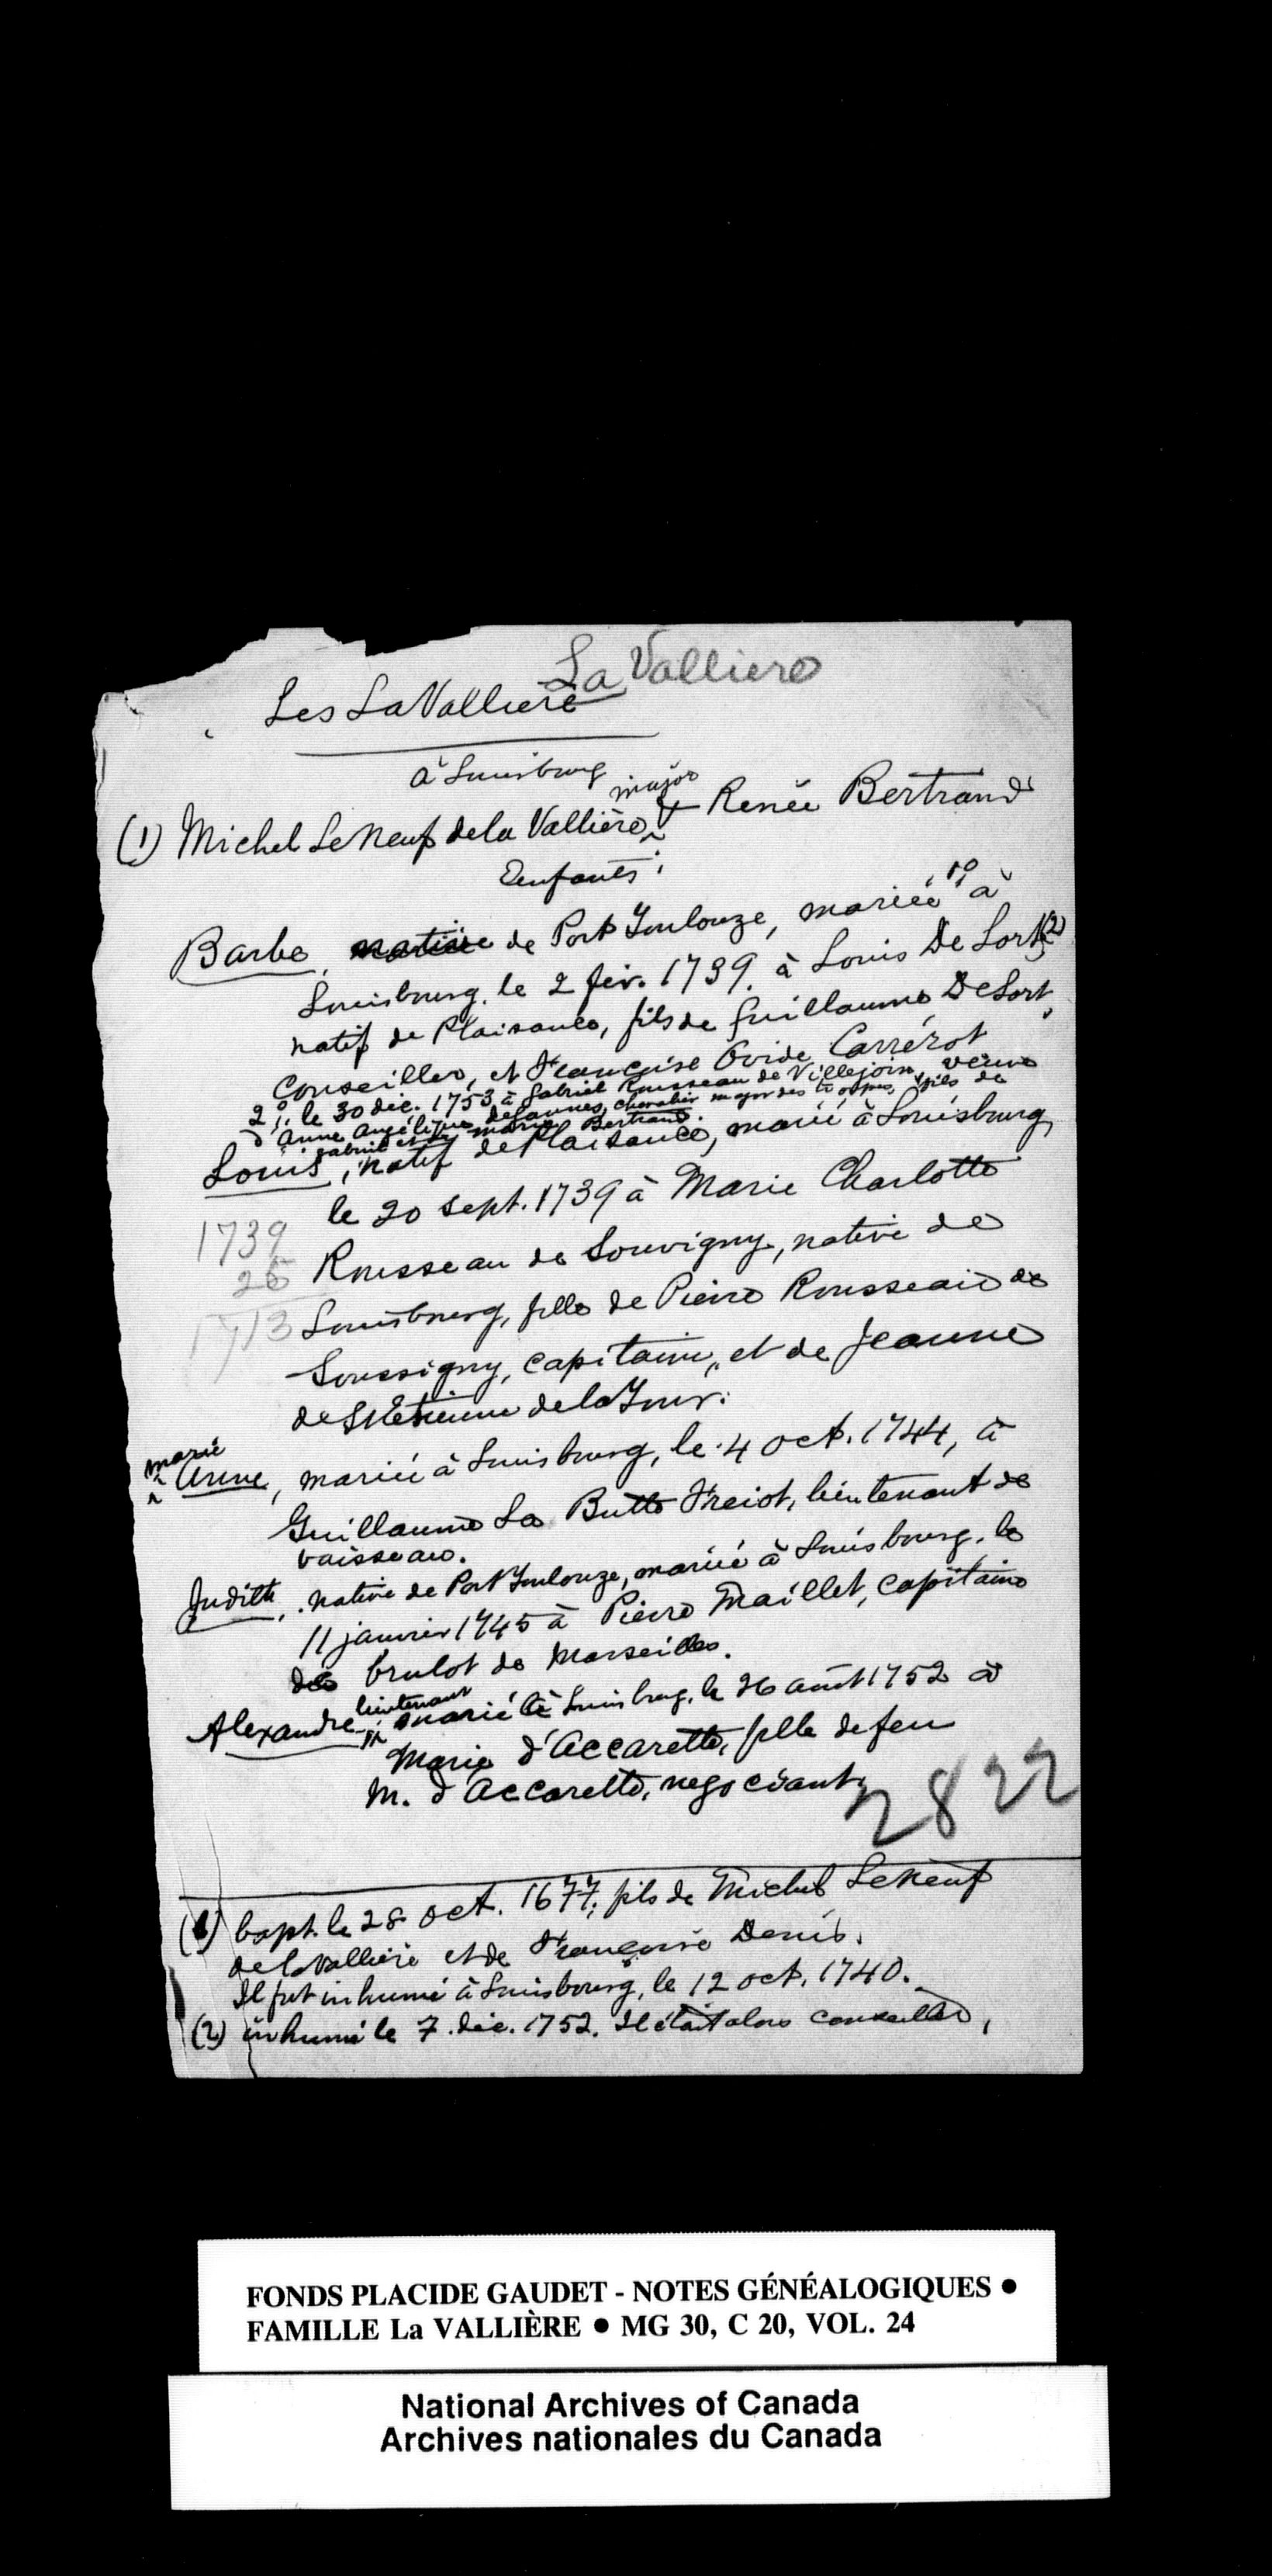 La Valliere
Les LaValliere
à Louisbourg
major
(1) Michel LeNeuf de la Vallière, & Renée Bertrand
Enfants:
Barbe, native de Port Toulouze, mariée 1º à
Louisbourg, le 2 fév. 1739, à Louis De Lort (2)
natif de Plaisance, fils de Guillaume DeLort,
Conseiller, et Françoise Ovide Carrérot
2º, le 30 déc. 1753 à Gabriel Rousseau de Villejoin, veuve
d'Anne Angélique deGannes, chevalier major des troupes, fils de
gabriel et de marie Bertrand.
Louis, natif de Plaisance, marié à Louisbourg,
le 20 sept. 1739 à Marie Charlotte
1739
Rousseau de Souvigny, native de
26
Louisbourg, fille de Pierre Rousseau de
1713
Soussigny, capitaine, et de Jeanne
de St Etienne de la Tour.
marie
Anne, mariée à Louisbourg, le 4 oct. 1744, à
Guillaume La Butte Freiot, lieutenant de
vaisseau.
Judith, native de Port Toulouze, mariée à Louisbourg, le
11 janvier 1745 à Pierre Maillet, capitaine
de brulot de Marseilles.
lieutenant
Alexandre, marié à Louisbourg, le 26 août 1752 à
Marie d'Accarette, fille de feu
M. d'Accarette, negociant.
2822
(1) bapt. le 28 oct. 1677; fils de Michel LeNeuf
de laVallière et de Françoise Denis.
Il fut inhumé à Louisbourg, le 12 oct. 1740.
(2) inhumé le 7 déc. 1752. Il était alors conseiller,
FONDS PLACIDE GAUDET - NOTES GÉNÉALOGIQUES ●
FAMILLE La VALLIÈRE ● MG 30, C 20, VOL. 24
National Archives of Canada
Archives nationales du Canada